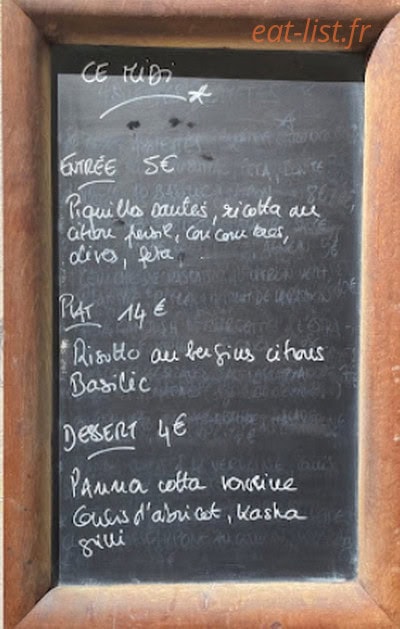 eat-list.fr
CE MIDI
ENTRÉE 5€
Piquillos sautés, ricotta au
citron persil, concombres,
olives, feta
PLAT 14€
Risotto aubergines citrons
Basilic
DESSERT 4€
Panna cotta verveine
Coulis d'abricot, Kasha
grillé